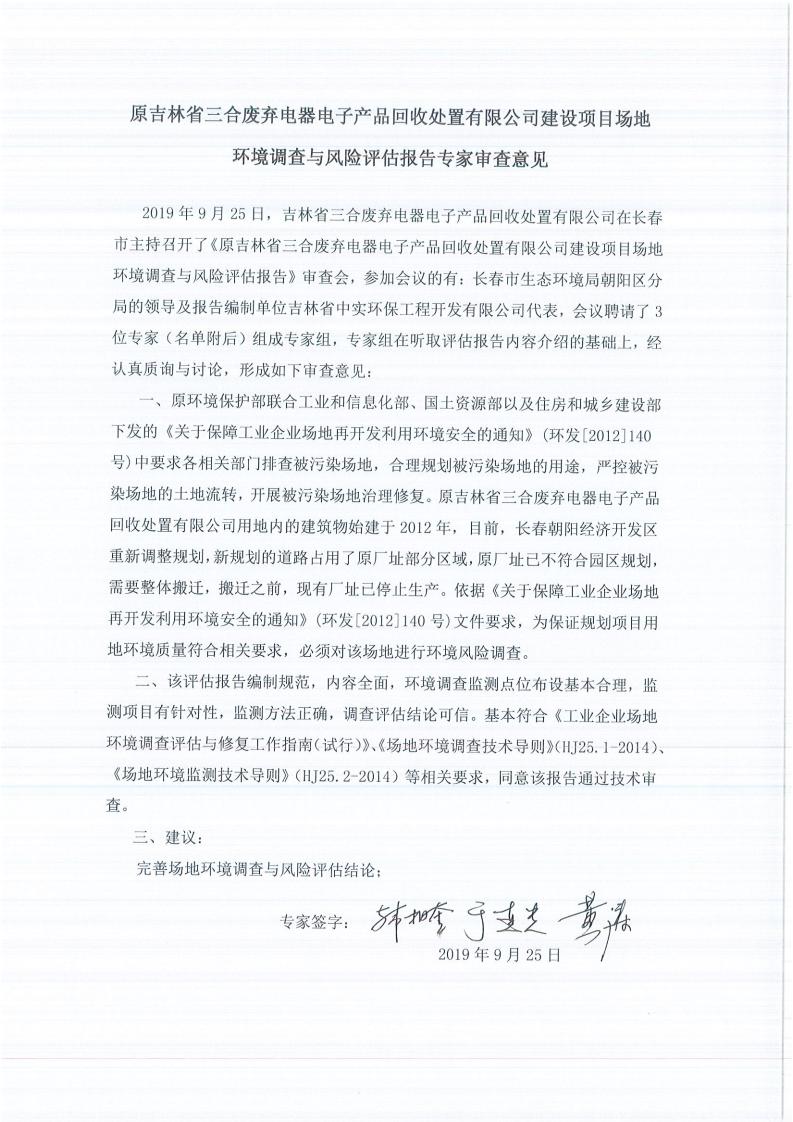 原吉林省三合废弃电器电子产品回收处置有限公司建设项目场地
环境调查与风险评估报告专家审查意见
2019年9月25日，吉林省三合废弃电器电子产品回收处置有限公司在长春
市主持召开了《原吉林省三合废弃电器电子产品回收处置有限公司建设项目场地
环境调查与风险评估报告》审查会，参加会议的有：长春市生态环境局朝阳区分
局的领导及报告编制单位吉林省中实环保工程开发有限公司代表，会议聘请了3
位专家（名单附后）组成专家组，专家组在听取评估报告内容介绍的基础上，经
认真质询与讨论，形成如下审查意见：
一、原环境保护部联合工业和信息化部、国土资源部以及住房和城乡建设部
下发的《关于保障工业企业场地再开发利用环境安全的通知》(环发[2012]140
号)中要求各相关部门排查被污染场地，合理规划被污染场地的用途，严控被污
染场地的土地流转，开展被污染场地治理修复。原吉林省三合废弃电器电子产品
回收处置有限公司用地内的建筑物始建于2012年，目前，长春朝阳经济开发区
重新调整规划，新规划的道路占用了原厂址部分区域，原厂址已不符合园区规划，
需要整体搬迁，搬迁之前，现有厂址已停止生产。依据《关于保障工业企业场地
再开发利用环境安全的通知》(环发[2012]140号)文件要求，为保证规划项目用
地环境质量符合相关要求，必须对该场地进行环境风险调查。
二、该评估报告编制规范，内容全面，环境调查监测点位布设基本合理，监
测项目有针对性，监测方法正确，调查评估结论可信。基本符合《工业企业场地
环境调查评估与修复工作指南(试行)》、《场地环境调查技术导则》(HJ25.1-2014)、
《场地环境监测技术导则》(HJ25.2-2014)等相关要求，同意该报告通过技术审
查。
三、建议：
完善场地环境调查与风险评估结论；
专家签字：
2019年9月25日